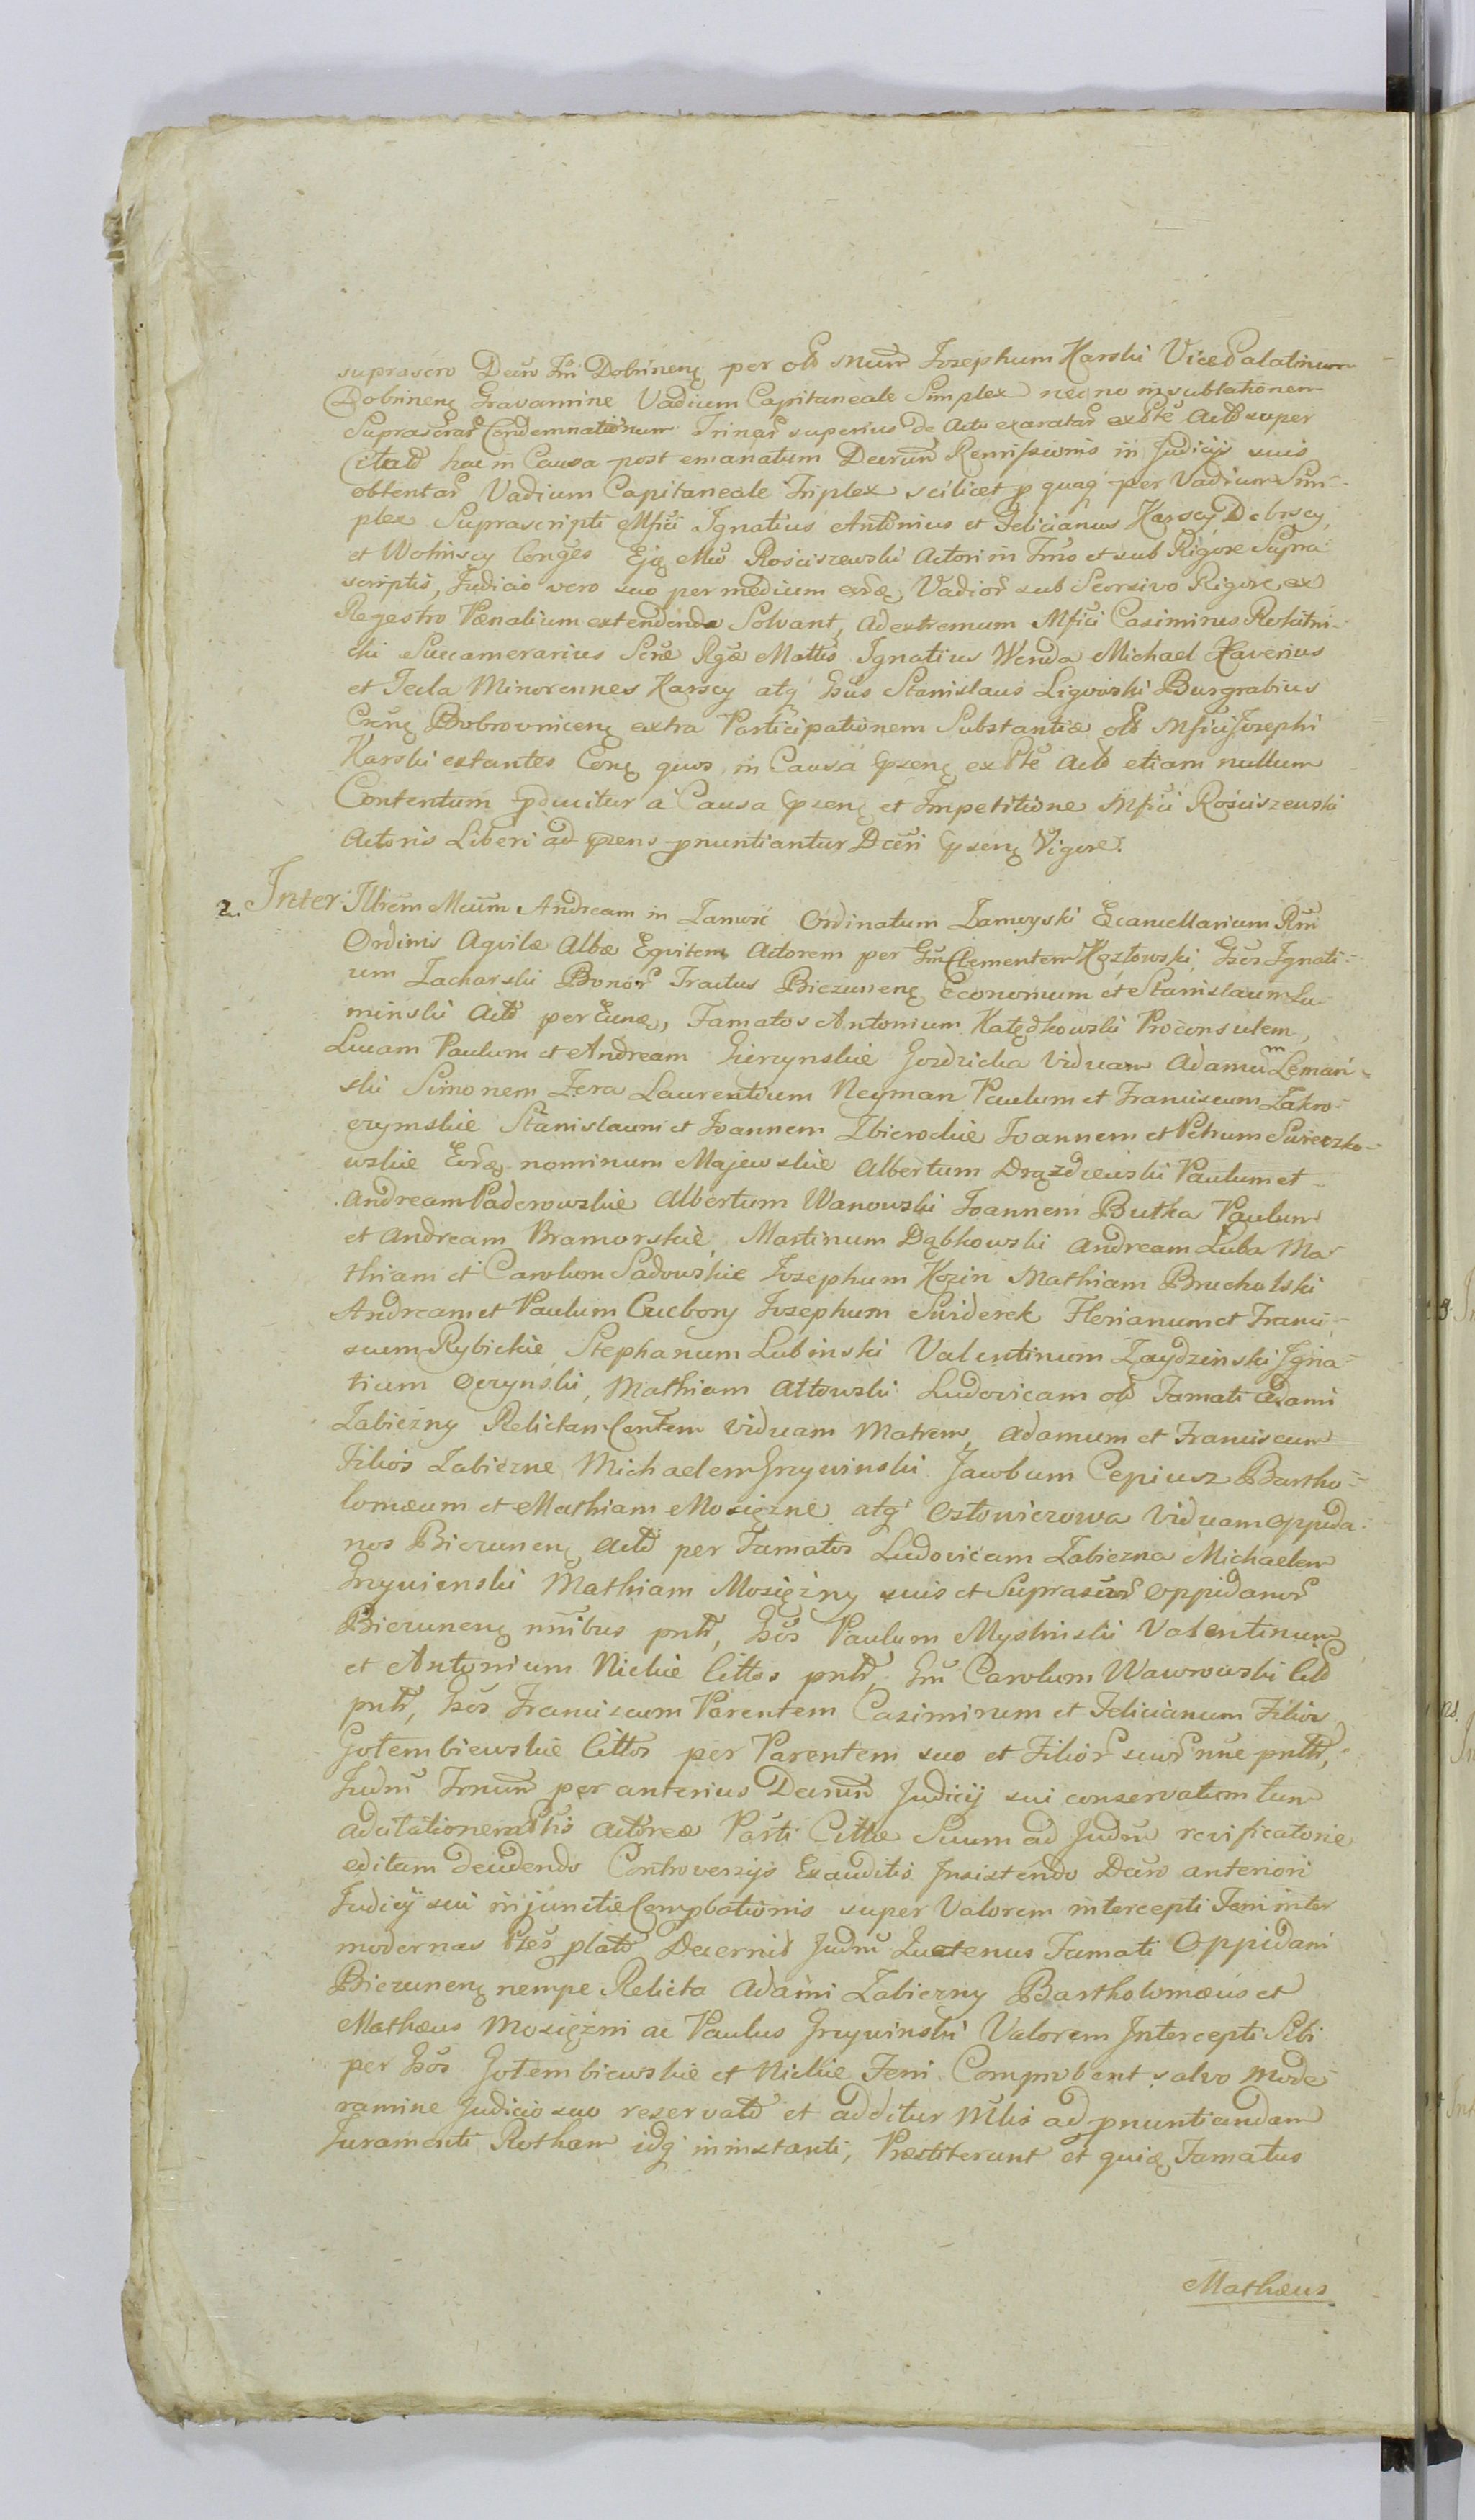 suprascro Decro Trri Dobrineng per olb Mcum Josephum Karski Vice Palatinum
Dobrineng Gravamine Vadium Capitaneale Simplex nec no in sublationem
Suprascrar Condemnationum Trinar superius de Actu exaratar ex Pte Actd super
Citatd hac in Causa post emanatum Decrum Remissionis in Judicijs suis
obtentar Vadium Capitaneale Triplex scilicet p quaq per Vadium Sim-
plex Suprascripti Mfici Ignatius Antonius et Felicianus Karscy Debrscy
et Wolinscy Conges Ejq Mci Rościszewski Actori in Frro et sub Rigore Supra
scriptis, Judicio vero suo per medium eorq Vadior sub Seorsivo Rigore ex
Regestro Pœnalium extendenda Solvant, Ad extremum Mfici Casimirus Rokitni-
cki Succamerarius Scræ Rgæ Mattis Ignatius Wenda Michael Xaverius
et Tecla Minorennes Karscy atq Gsus Stanislaus Ligowski Burgrabius
Csrng Bobrovniceng extra Participationem Substantiæ olb Mfici Josephi
Karski extantes Cong quos in Causa Pzeng ex Pte Actd etiam nullum
Contentum pducitur a Causa pzeng et Impetitione Mfici Rościszewski
Actoris Liberi ad pzens pnuntiantur Dcri pzeng Vigore.
2. Inter Illrem Mcum Andream in Zamość Ordinatum Zamoyski Excancellarium Rni
Ordinis Aqvilæ Albæ Eqvitem Actorem per Gm Clementem Kozłowski, Gsos Ignati-
um Zacharski Bonor Tractus Biezuneng Economum et Stanislaum Lu-
minski Actd per Eunq, Famatos Antonium Katędkowski Proconsulem,
Lucam Paulum et Andream Gierzynskie Gozdzicka Viduam Adamum Lemań-
ski Simonem Zera Laurentium Neyman Paulum et Franciscum Zakro-
czymskie Stanislaum et Joannem Zbierockie Joannem et Petrum Swierczko-
wskie Eorq nominum Majewskie Albertum Drązdzewski Paulum et
Andream Paderowskie Albertum Wanowski Joannem Butka Paulum
et Andream Bramorskie, Martinum Dąbkowski Andream Luba Ma-
thiam et Carolum Sadowskie Josephum Kozin Mathiam Brucholski
Andream et Paulum Czcebory Josephum Swiderek Florianum et Franci-
scum Rybickie, Stephanum Lubinski Valentinum Zaydzinski Igna-
tium Oczynski, Mathiam Attowski Ludovicam olb Famati Adami
Zabiezny Relictam Contem Viduam Matrem, Adamum et Franciscum
Filios Zabiezne Michaelem Grzywinski Jacobum Cepiusz Bartho-
lomæum et Mathiam Mosięzne atq Osłowiczowa Viduam Oppida-
nos Biezuneng Actd per Famatos Ludovicam Zabiezna Michaelem
Grzywienski Mathiam Mosięzny suis et Suprascrr Oppidanor
Biezuneng nnibus pntt, Gsos Paulum Myslinski Valentinum
et Antonium Nickie Cittos pntt, Gm Carolum Wawrowski Citd
pntt, Gsos Franciscum Parentem Casimirum et Felicianum Filios
Gołembiewskie Cittos per Parentem suo et Filior suor nne pntt,
Judm Trnum per anterius Decrum Judicij sui conservatum tum
adcitationem Ptis Actoreæ Parti Cittæ Suum ad Judm reificatorie
editam decidendo Controversijs Exauditis Insistendo Decro anteriori
Judicij sui injunctæ Compbationis super Valorem intercepti Feni inter
modernas Ptes platd Decernit Judm Quatenus Famati Oppidani
Biezuneng nempe Relicta Adami Zabiezny Bartholomæus et
Mathæus Mosięzni ac Paulus Grzywinski Valorem Intercepti Sibi
per Gsos Gołembiewskie et Nickie Feni Comprobent salvo Mode-
ramine Judicio suo reservatd et additur Mlis ad pnuntiandam
Juramenti Rotham idq in instanti, Præstiterunt et quiq Famatus
Mathæus